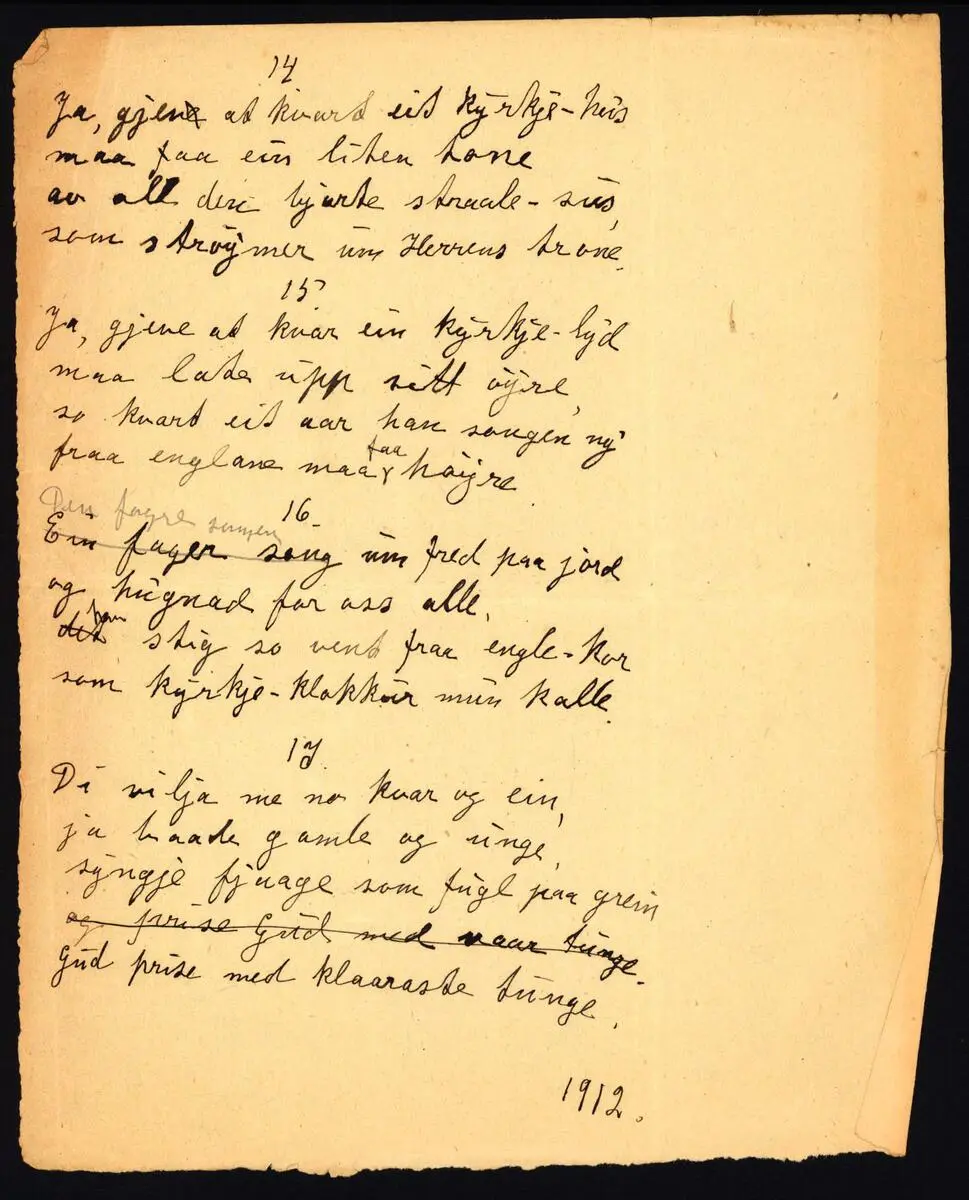 14
Ja, gjeve at kvart eit kyrkje-hus
maa faa ein liten tone
av all den bjarte straale-sus,
som strøymer um Herrens trone.
15
Ja, gjeve at kvar ein kyrkje-lyd
maa late upp sitt øyre,
so kvart eit aar han songen ny
fraa englane maa faa høyre.
16.
Den fagre songen
Ein fager song um fred paa jord
og hugnad for oss alle,
det han stig so vent fraa engle-kor
som kyrkje-klokkur mun kalle.
17.
Di vilja me no kvar og ein,
ja baade gamle og unge,
syngje fjaage som fugl paa grein
og prise Gud med vaar tunge.
Gud prise med klaaraste tunge.
1912.